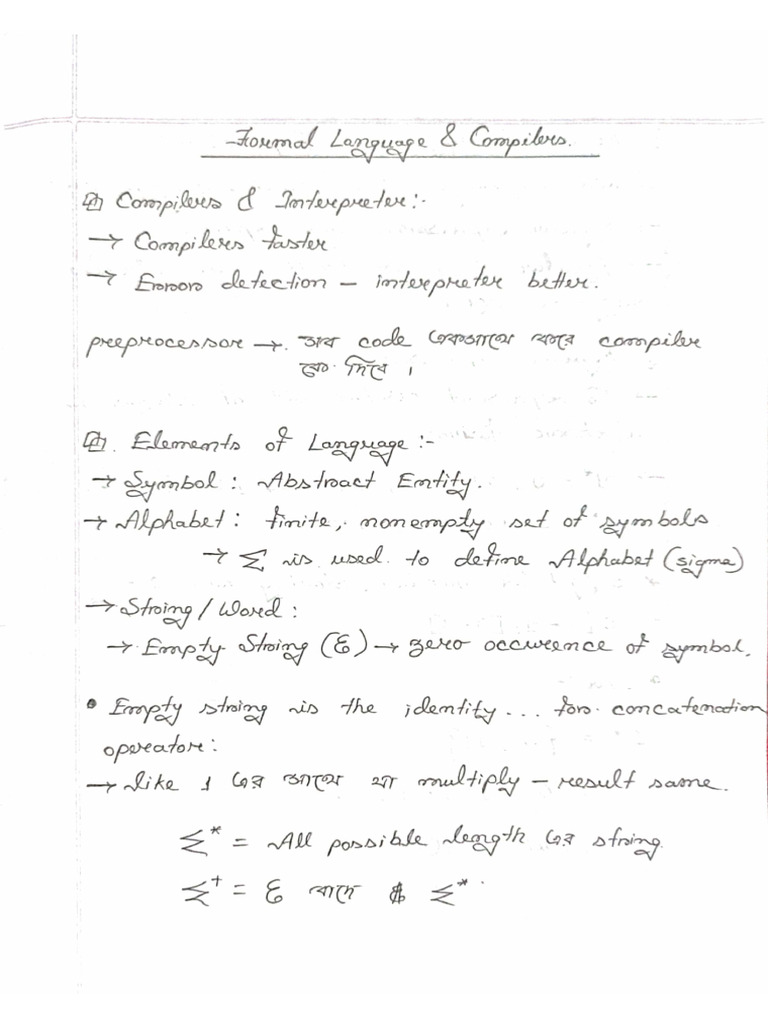 Formal Language & Compilers.
Compilers & Interpreter:-
→ Compilers faster
→ Error detection – interpreter better.
preprocessor → সব code একসাথে করে compiler
কে দিবে।
Elements of Language:-
→ Symbol: Abstract Entity.
→ Alphabet: finite, nonempty set of symbols
→ Σ is used to define Alphabet (sigma)
→ String/Word:
→ Empty String (ε) → zero occurence of symbol.
• Empty string is the identity... for concatenation
operator:
→ like 1 এর সাথে যা multiply – result same.
Σ* = All possible length এর string
Σ+ = ε বাদে Σ*